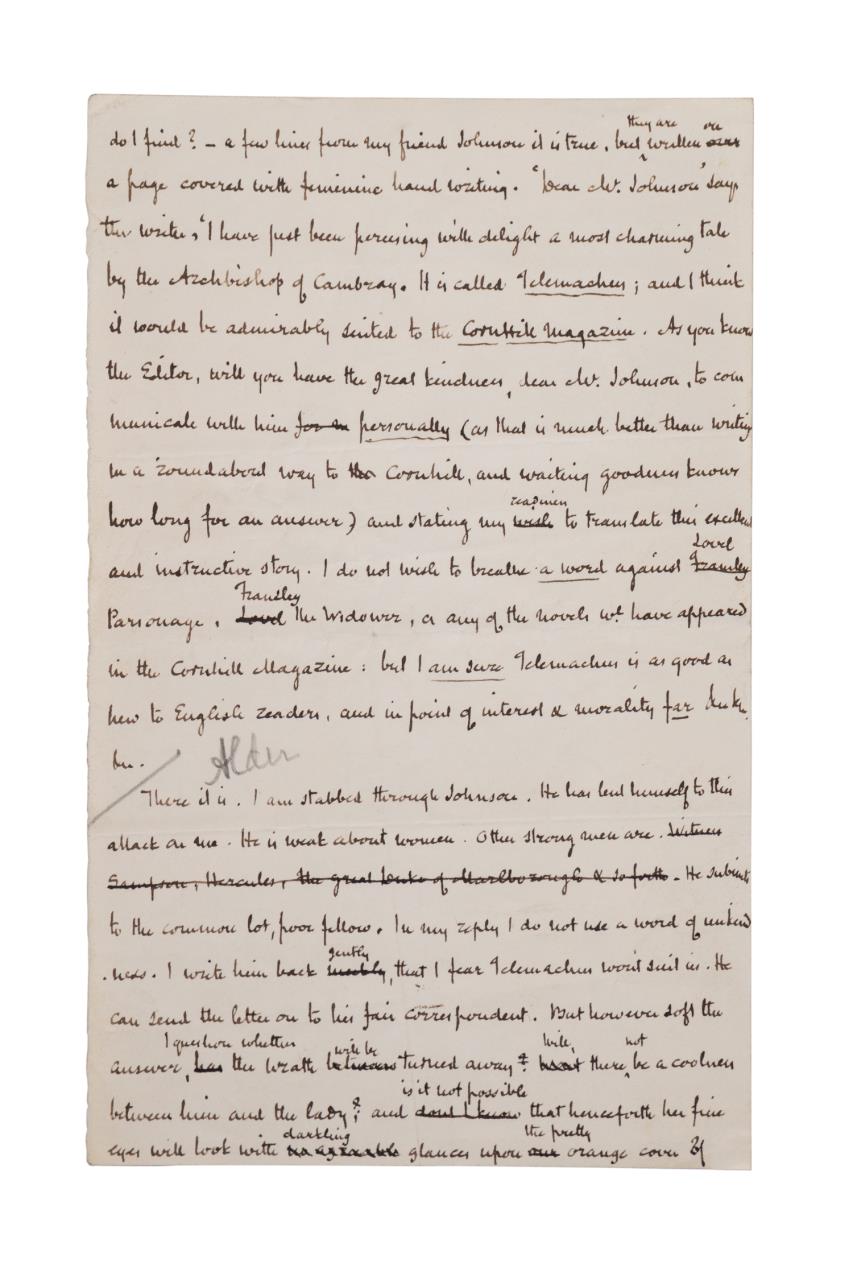 do I find? – a few lines from my friend Johnson it is true, but they are written on over
a page covered with feminine hand writing. 'Dear Mr. Johnson' says
the writer, 'I have just been perusing with delight a most charming tale
by the Archbishop of Cambray. It is called Telemachus; and I think
it would be admirably suited to the Cornhill Magazine. As you know
the Editor, will you have the great kindness, dear Mr. Johnson, to com
municate with him for m personally (as that is much better than writing
in a roundabout way to the Cornhill, and waiting goodness knows
how long for an answer) and stating my readiness wish to translate this excellent
and instructive story. I do not wish to breathe a word against Lovel Framley
Parsonage, Framley Lovel The Widower, or any of the novels wh. have appeared
in the Cornhill Magazine: but I am sure Telemachus is as good as
new to English readers, and in point of interest & morality far
&c.
Alder
There it is. I am stabbed through Johnson. He has lent himself to this
attack on me. He is weak about women. Other strong men are. Witness
Sampson, Hercules, the great Duke of Marlborough & so forth. He submits
to the common lot, poor fellow. In my reply I do not use a word of unkind
ness. I write him back gently meekly, that I fear Telemachus wont suit us. He
can send the letter on to his fair correspondent. But however soft the
answer, I question whether has the wrath will be turned away? Will not there be a coolness
between him and the lady? and is it not possible dont I know that henceforth her fine
eyes will look with darkling no agreeable glances upon the pretty our orange cover of